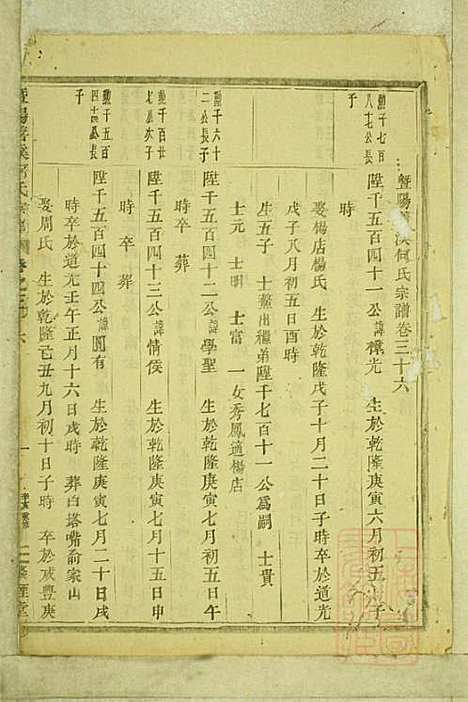 暨陽 溪何氏宗譜卷三十六
勳千七百八七公長子
陞千五百四十一公諱 光 生於乾隆庚寅六月初五 子時
娶楊店楊氏 生於乾隆戊子十月二十日子時卒於道光戊子八月初五日酉時
生五子 士 出繼弟陞千七百十一公爲嗣 士貴
士元 士明 士富 一女秀鳳適楊店
勳千六十二公長子
陞千五百四十二公諱學聖 生於乾隆庚寅七月初五日午時卒 葬
勳千百廿七公次子
陞千五百四十三公諱情俟 生於乾隆庚寅七月十五日申時 卒 葬
勳千五百四十四公長子
陞千五百四十四公諱圓有 生於乾隆庚寅七月二十日戌時卒於道光壬午正月十六日戌時 葬白塔嘴俞家山
娶周氏 生於乾隆己丑九月初十日子時 卒於咸豐庚